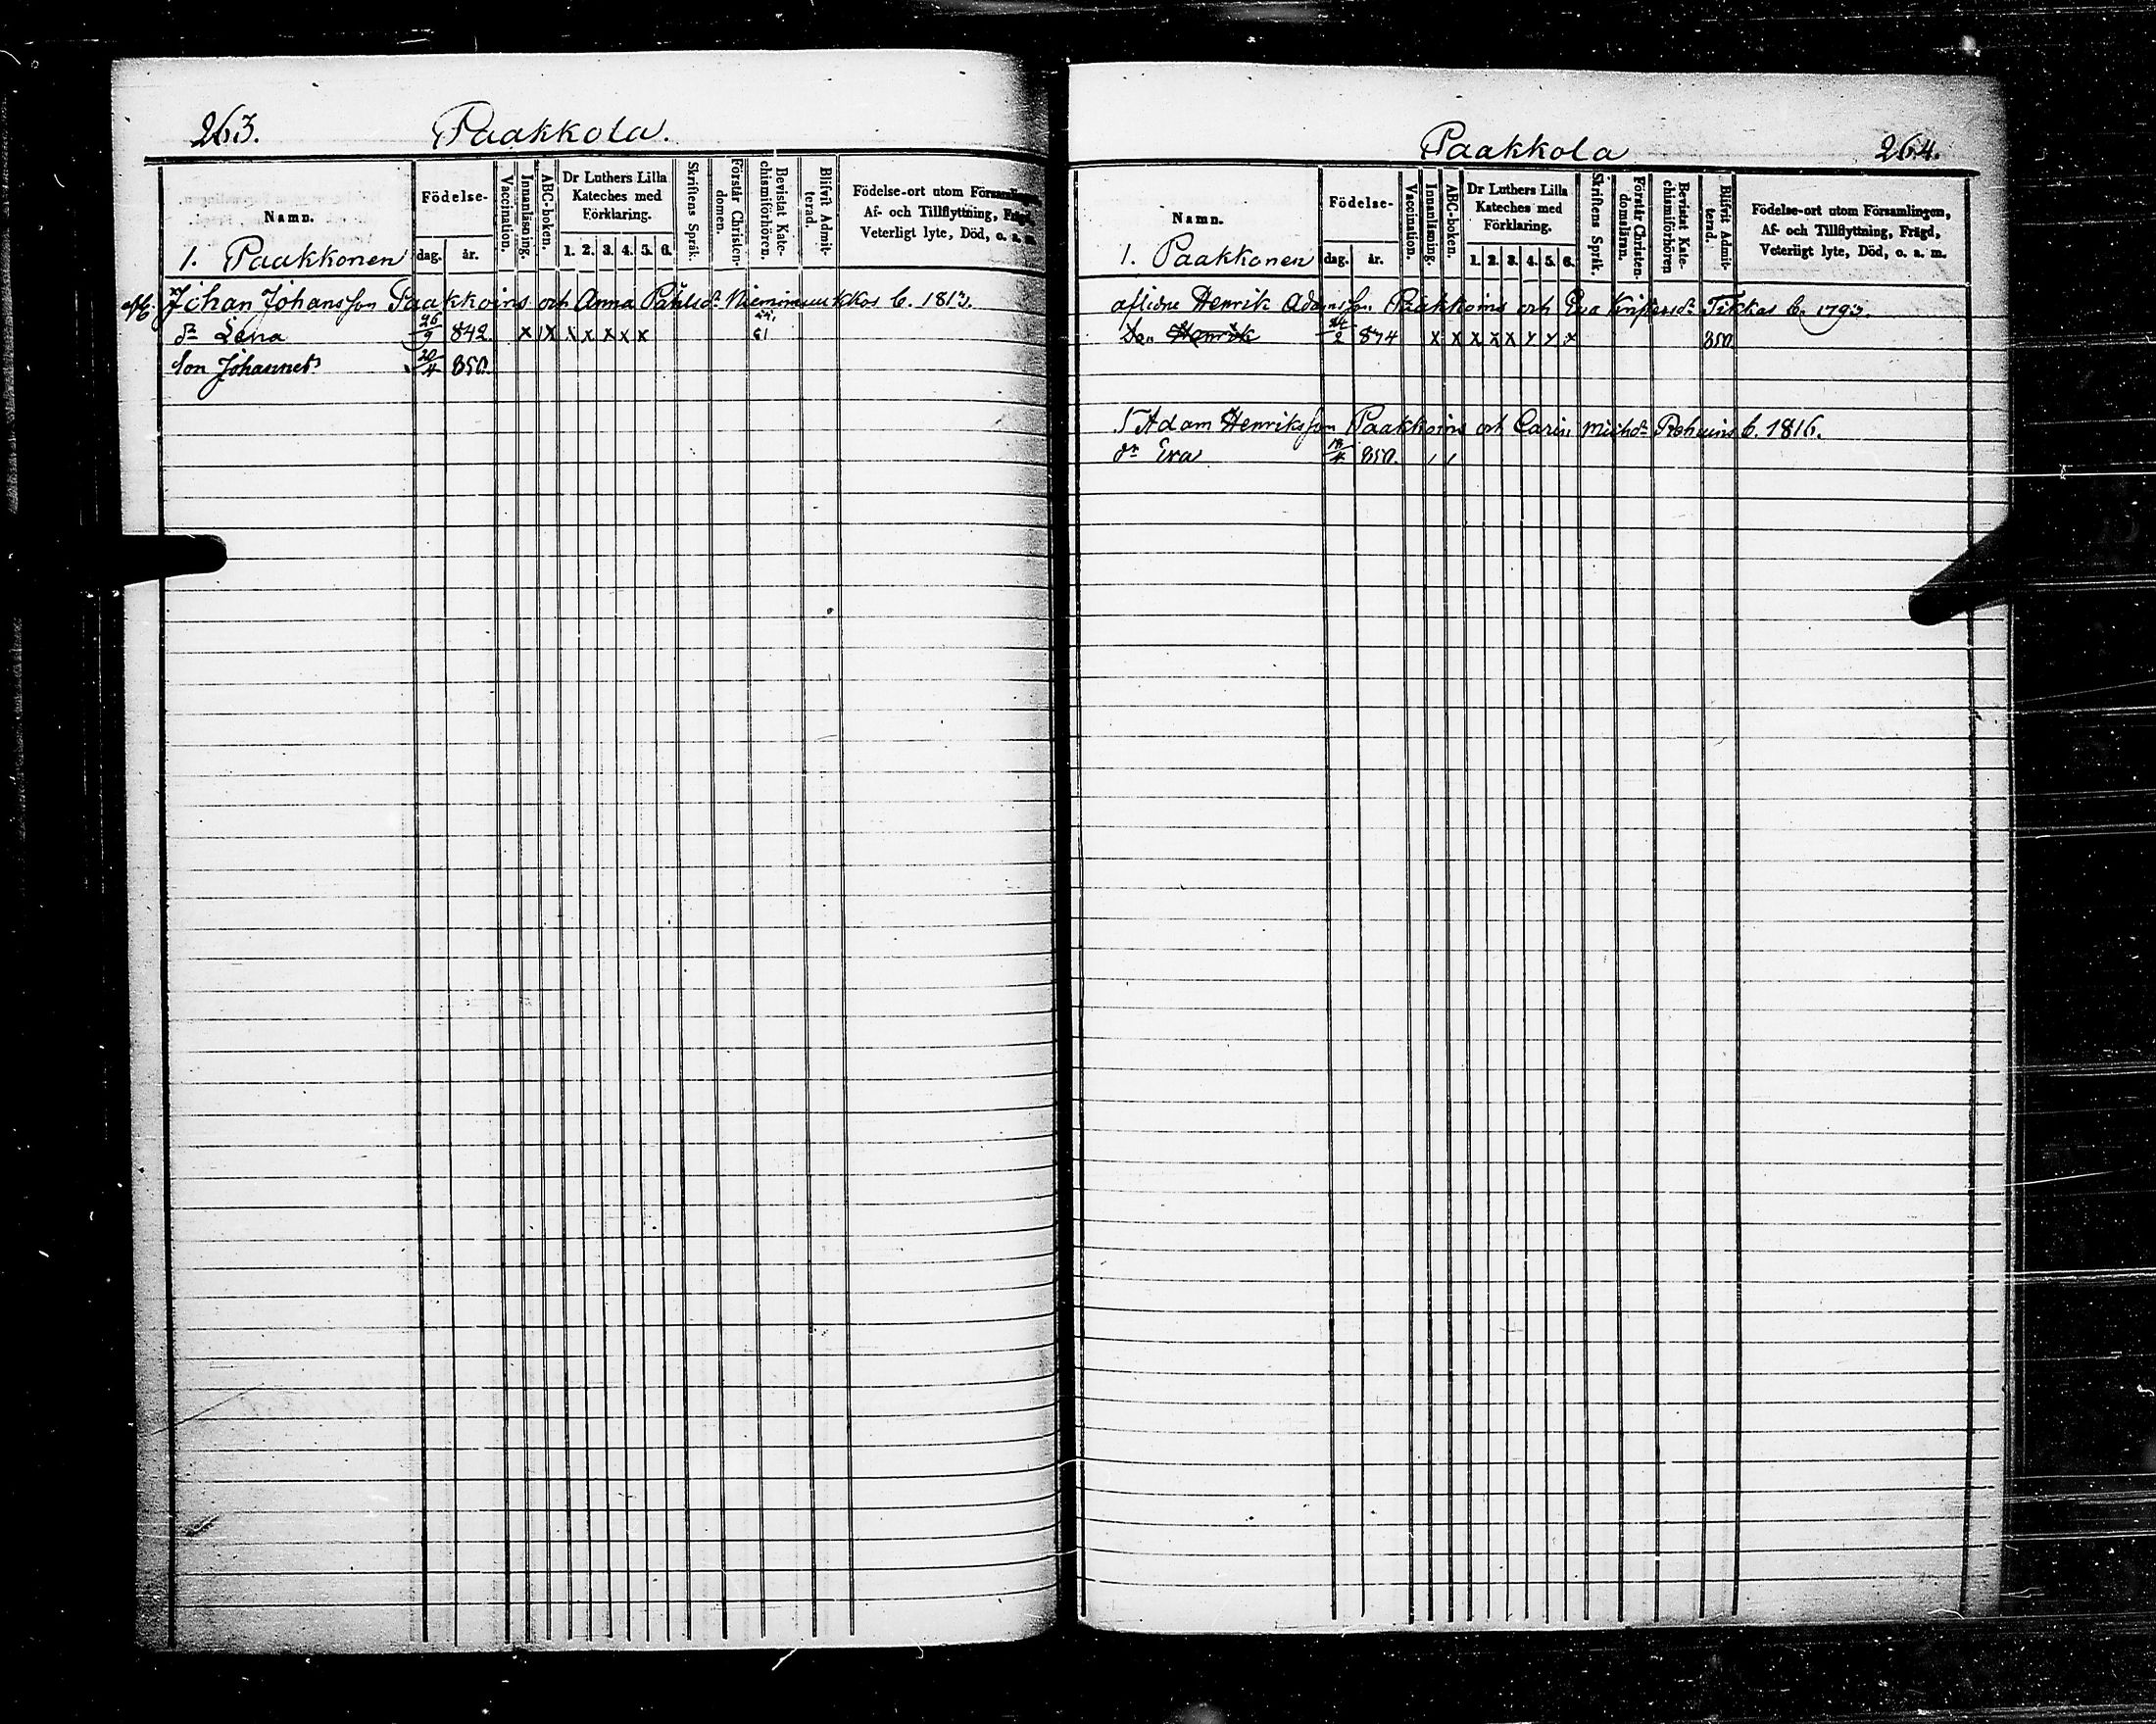 263. Paakkola.
Namn.
Födelse-
dag. år.
Vaccination.
Innanläsning.
ABC-boken.
Dr Luthers Lilla
Kateches med
Förklaring.
1. 2. 3. 4. 5. 6.
Skriftens Språk.
Förstår Christen-
domen.
Bevistat Kate-
chismiförhören.
Blifvit Admit-
terad.
Födelse-ort utom Församlingen,
Af- och Tillflyttning, Frägd,
Veterligt lyte, Död, o. a. m.
1. Paakkonen
Johan Johansson Paakkoins och Anna Påhlsdr b. 1813.
dr Lena 26/9 842. x x x x x x x 61
Son Johannes 20/4 850.
Paakkola 264.
Namn.
Födelse-
dag. år.
Vaccination.
Innanläsning.
ABC-boken.
Dr Luthers Lilla
Kateches med
Förklaring.
1. 2. 3. 4. 5. 6.
Skriftens Språk.
Förstår Christen-
domsläran.
Bevistat Kate-
chismiförhören
Blifvit Admit-
terad.
Födelse-ort utom Församlingen,
Af- och Tillflyttning, Frägd,
Veterligt lyte, Död, o. a. m.
1. Paakkonen
aflidne Henrik Adamsson Paakkoins och Eva Tikkas b. 1793.
Son Henrik 24/2 834 x x x x x x x x 850
Adam Henriksson Paakkoins och Carin Michdr b. 1816.
dr Eva 850. / /